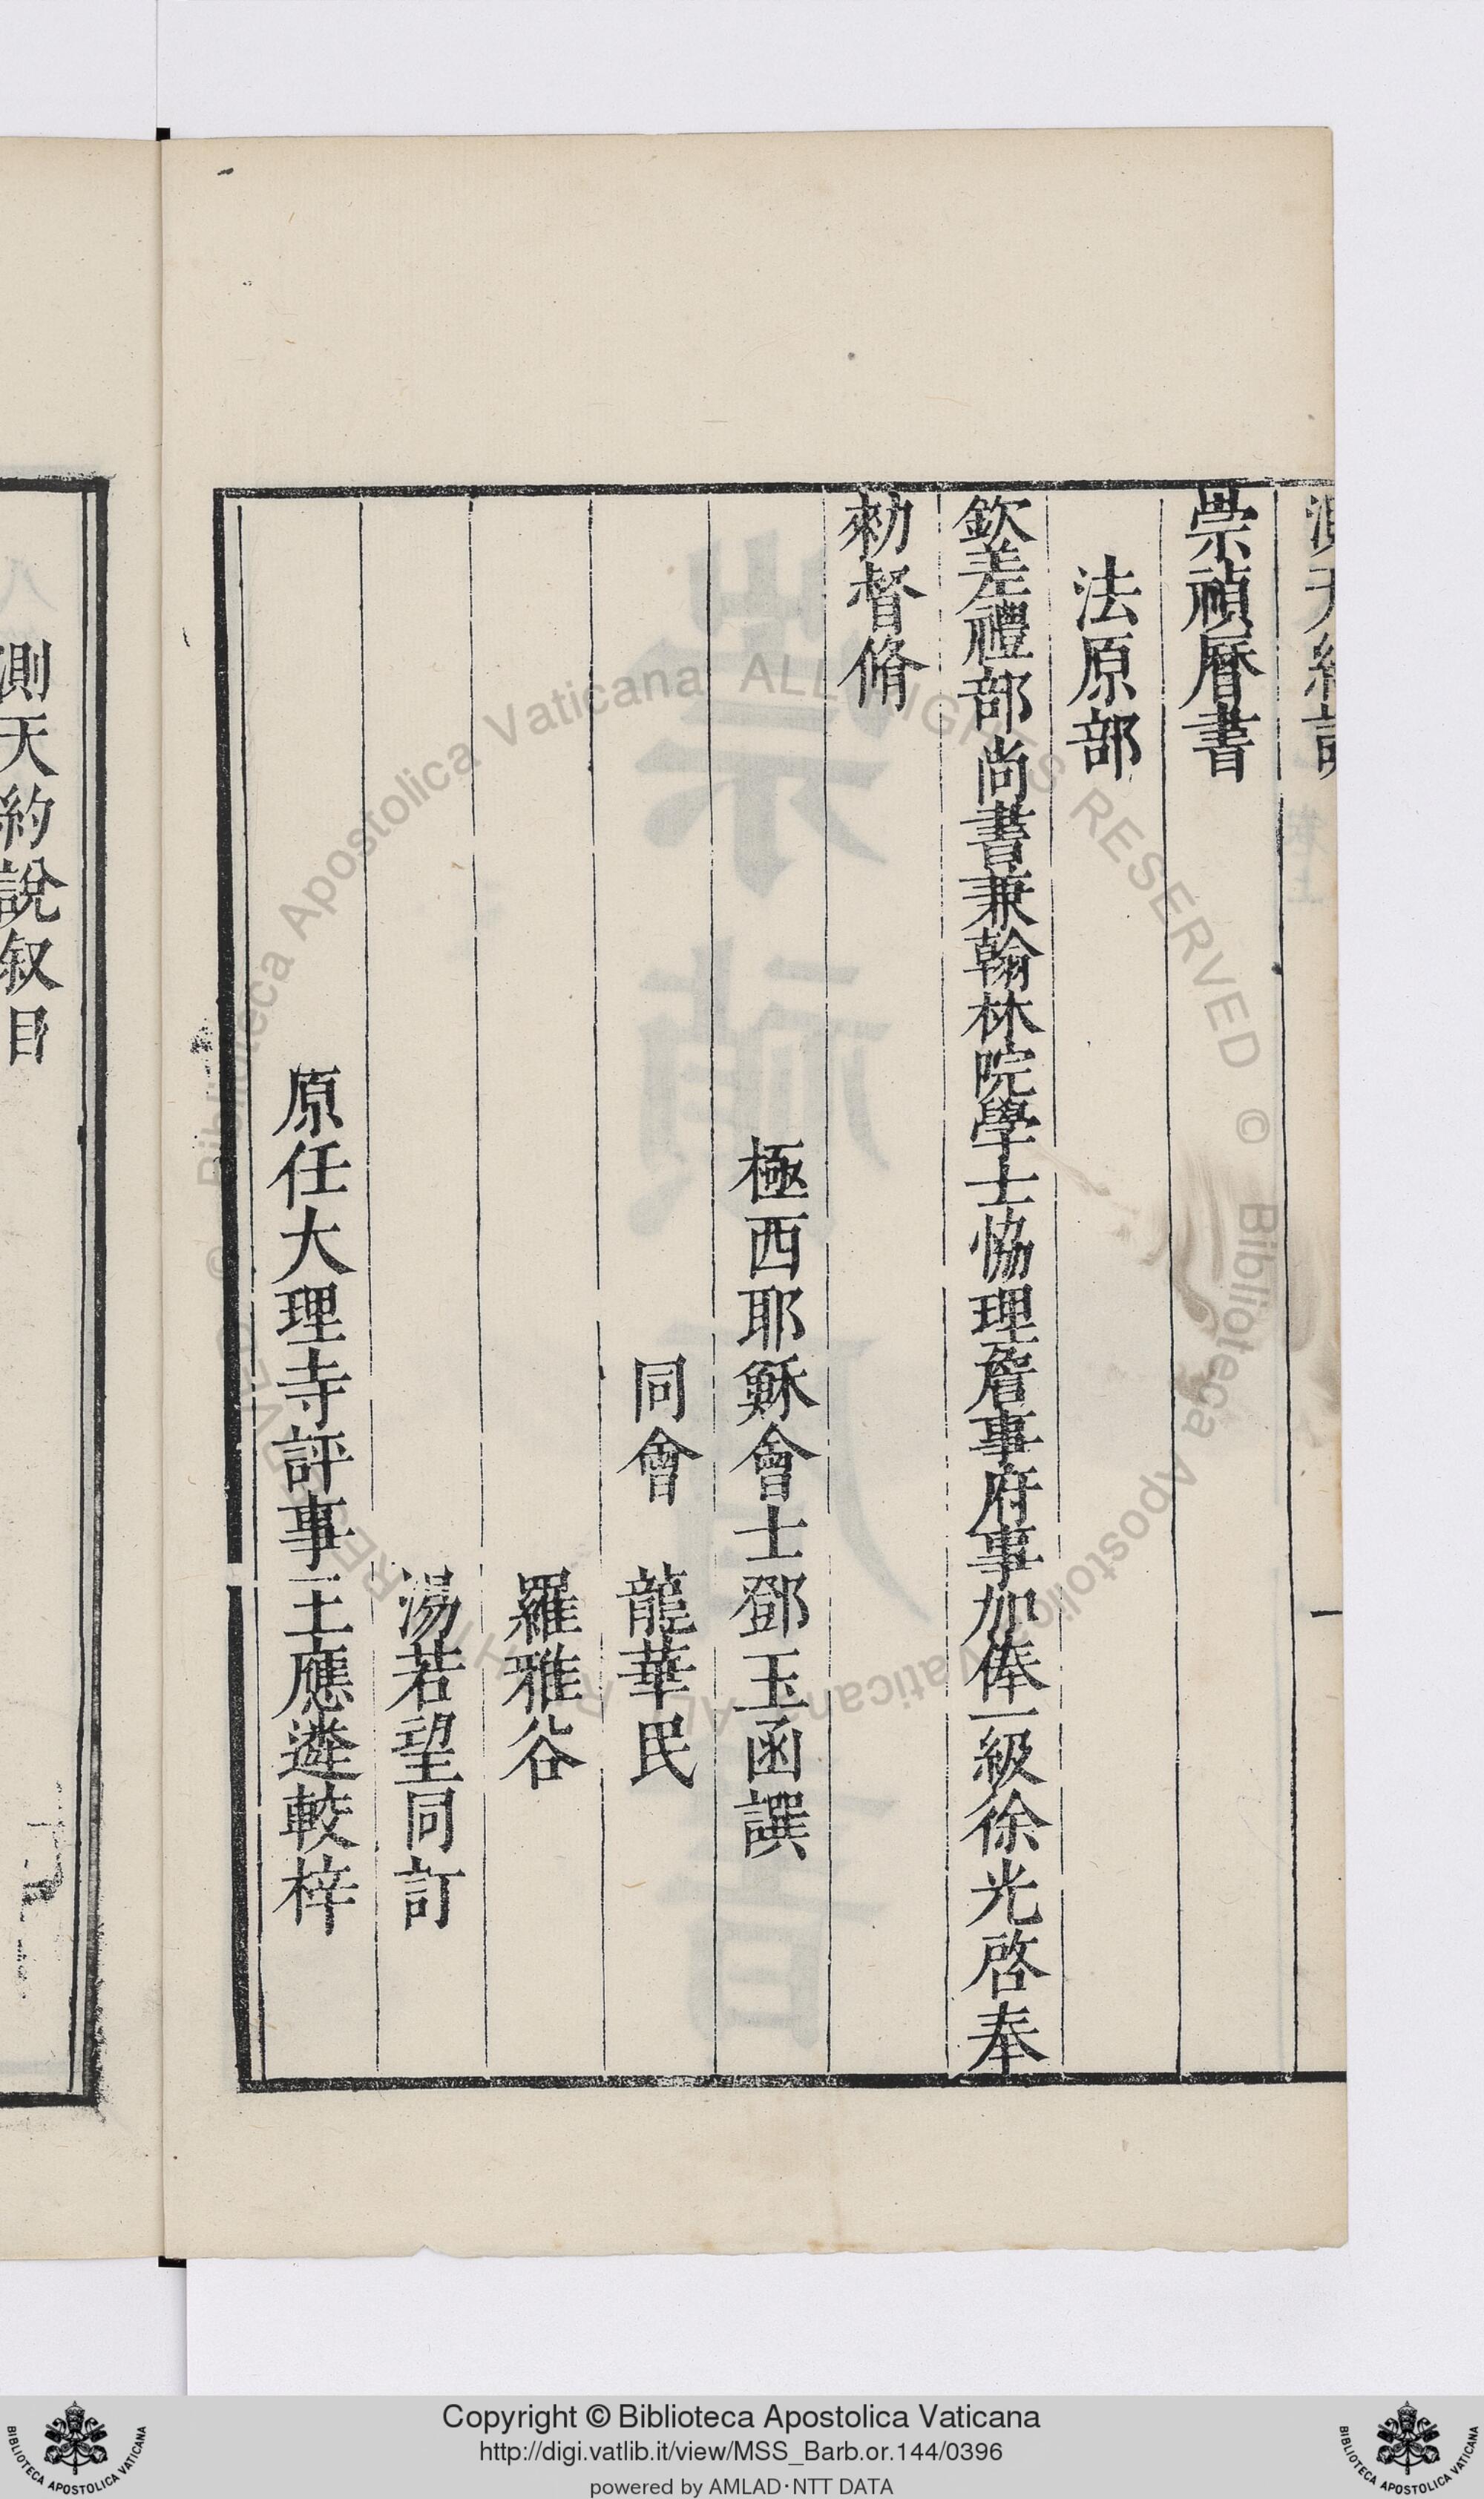 崇禎曆書
法原部
欽差禮部尚書兼翰林院學士恊理詹事府事加俸一級徐光啓奉
勑督脩
極西耶穌會士鄧玉函譔
同會 龍華民
羅雅谷
湯若望同訂
原任大理寺評事王應遴較梓
測天約說叙目
一
Copyright © Biblioteca Apostolica Vaticana
http://digi.vatlib.it/view/MSS_Barb.or.144/0396
powered by AMLAD·NTT DATA
BIBLIOTECA APOSTOLICA VATICANA
BIBLIOTECA APOSTOLICA VATICANA